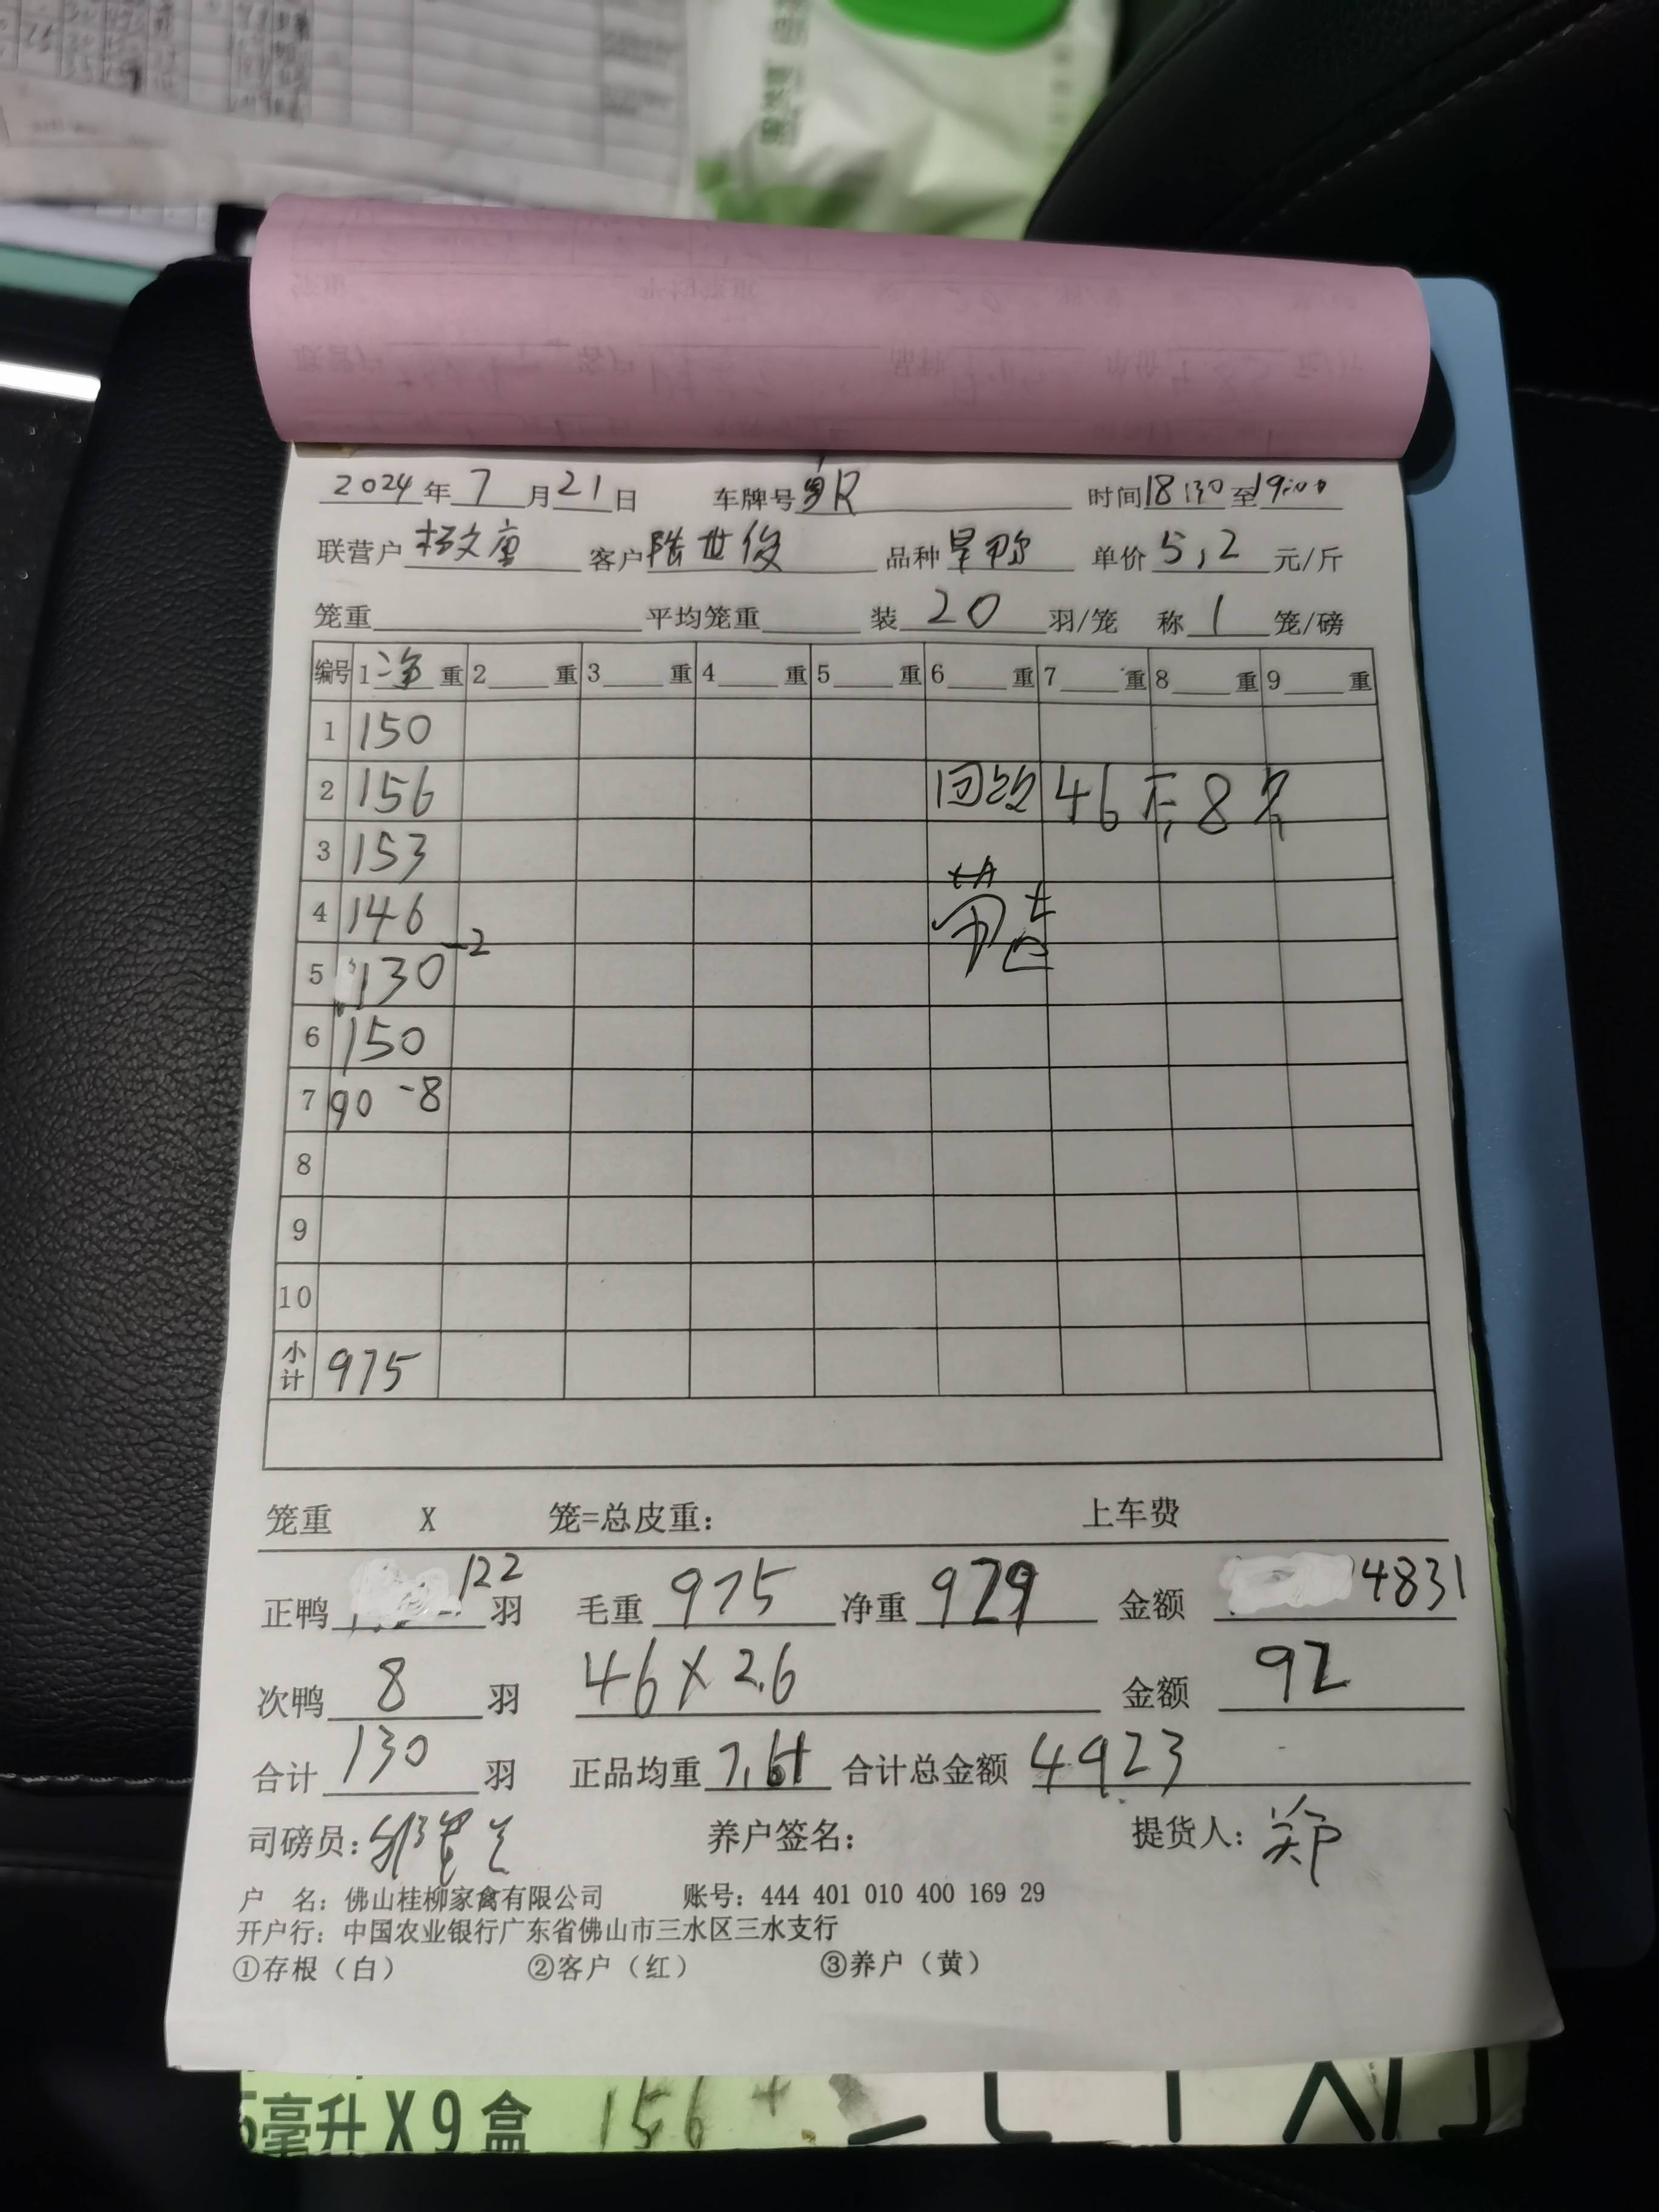 2024年7月21日 车牌号粤R 时间18:30至19:00
联营户杨文唐 客户陆世俊 品种旱鸭 单价5,2元/斤
笼重 平均笼重 装20羽/笼 称1笼/磅
编号 1净重 2重 3重 4重 5重 6重 7重 8重 9重
1 150
2 156 回 46斤,8只
3 153
4 146
5 130 -2
6 150
7 90 -8
8
9
10
小计 975
笼重 X 笼=总皮重: 上车费
正鸭122羽 毛重975 净重929 金额4831
次鸭8羽 46X2.6 金额92
合计130羽 正品均重7.61 合计总金额4923
司磅员: 养户签名: 提货人:郑
户 名: 佛山桂柳家禽有限公司 账号: 444 401 010 400 169 29
开户行: 中国农业银行广东省佛山市三水区三水支行
①存根（白） ②客户（红） ③养户（黄）
毫升X9盒 156+